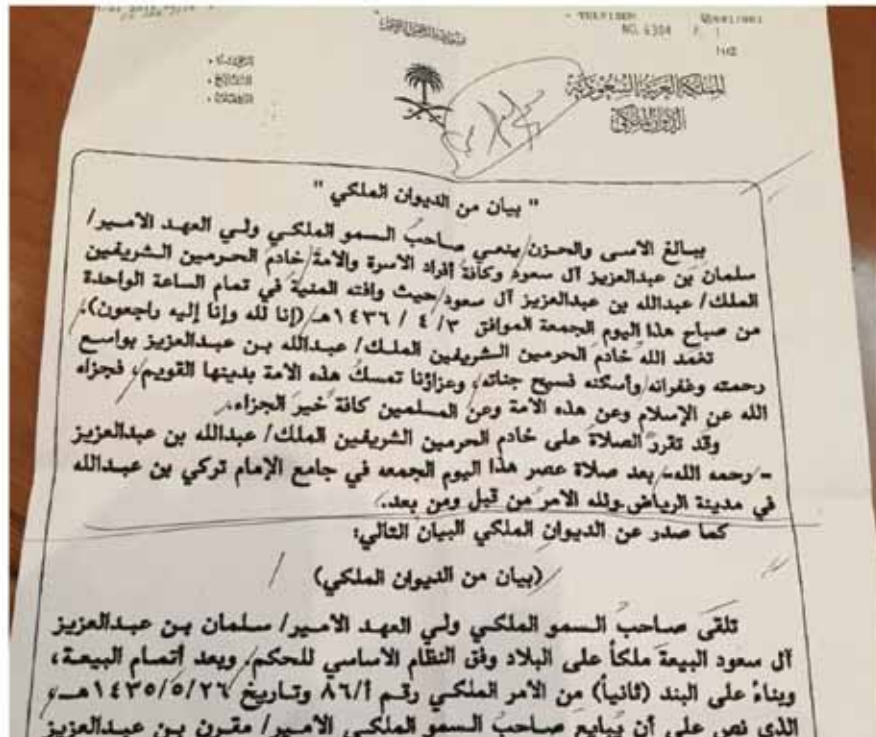 NO. 6304 P. 1
المملكة العربية السعودية
الديوان الملكي
" بيان من الديوان الملكي "
ببالغ الاسى والحزن ينعي صاحبُ السمو الملكي ولي العهد الامير/
سلمان بن عبدالعزيز آل سعود وكافة أفراد الاسرة والامة/ خادمَ الحرمين الشريفين
الملك/ عبدالله بن عبدالعزيز آل سعود/ حيث وافته المنية في تمام الساعة الواحدة
من صباح هذا اليوم الجمعة الموافق ٣/ ٤ / ١٤٣٦هـ (إنا لله وإنا إليه راجعون).
تغمد الله خادمَ الحرمين الشريفين الملك/ عبدالله بن عبدالعزيز بواسع
رحمته وغفرانه/ وأسكنه فسيح جناته، وعزاؤنا تمسكُ هذه الامة بدينها القويم، فجزاه
الله عن الإسلام وعن هذه الامة وعن المسلمين كافةً خيرَ الجزاء.
وقد تقررَ الصلاةُ على خادم الحرمين الشريفين الملك/ عبدالله بن عبدالعزيز
-رحمه الله- بعد صلاة عصر هذا اليوم الجمعه في جامع الإمام تركي بن عبدالله
في مدينة الرياض. ولله الامر من قبل ومن بعد.
كما صدر عن الديوان الملكي البيان التالي:
(بيان من الديوان الملكي)
تلقى صاحبُ السمو الملكي ولي العهد الامير/ سلمان بن عبدالعزيز
آل سعود البيعةَ ملكاً على البلاد وفق النظام الاساسي للحكم. وبعد أتمام البيعة،
وبناءً على البند (ثانياً) من الامر الملكي رقم أ/٨٦ وتاريخ ١٤٣٥/٥/٢٦هـ،
الذي نص على أن يُبايعَ صاحبُ السمو الملكي الامير/ مقرن بن عبدالعزيز